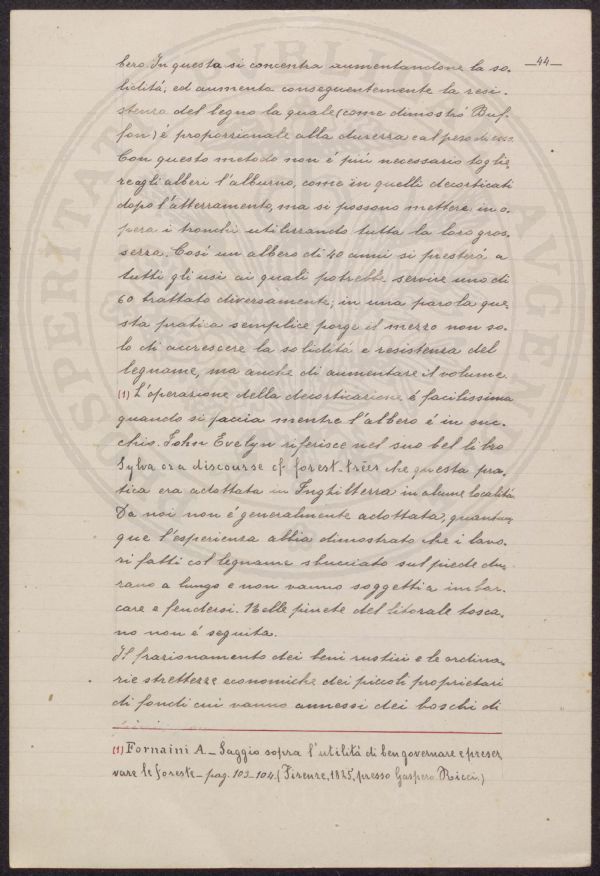 —44—
bero. In questa si concentra aumentandone la so-
lidità; ed aumenta conseguentemente la resi-
stenza del legno la quale (come dimostró Buf-
fon) é proporzionale alla durezza e al peso di esso.
Con questo metodo non é piú necessario toglie-
re agli alberi l'alburno, come in quelli decorticati
dopo l'atterramento, ma si possono mettere in o-
pera i tronchi utilizzando tutta la loro gros-
sezza. Cosí un albero di 40 anni si presterá a
tutti gli usi ai quali potrebbe servire uno di
60 trattato diversamente; in una parola que-
sta pratica semplice porge il mezzo non so-
lo di accrescere la solidità e resistenza del
legname, ma anche di aumentare il volume.
(1) L'operazione della decorticazione é facilissima
quando si faccia mentre l'albero é in suc-
chio. John Evelyn riferisce nel suo bel libro
Sylva or a discourse of forest-trees che questa pra-
tica era adottata in Inghilterra in alcune localitá
Da noi non é generalmente adottata, quantun-
que l'esperienza abbia dimostrato che i lavo-
ri fatti col legname sbucciato sul piede du-
rano a lungo e non vanno soggetti a imbar-
care e fendersi. Nelle pinete del litorale tosca-
no non é seguita.
Il frazionamento dei beni rustici e le ordina-
rie strettezze economiche dei piccoli proprietari
di fondi cui vanno annessi dei boschi di
(1) Fornaini A. - Saggio sopra l'utilitá di ben governare e preser-
vare le foreste - pag. 103-104. (Firenze, 1825, presso Gaspero Ricci.)
PVBLICAE
PROSPERITATIS
AVGENDAE